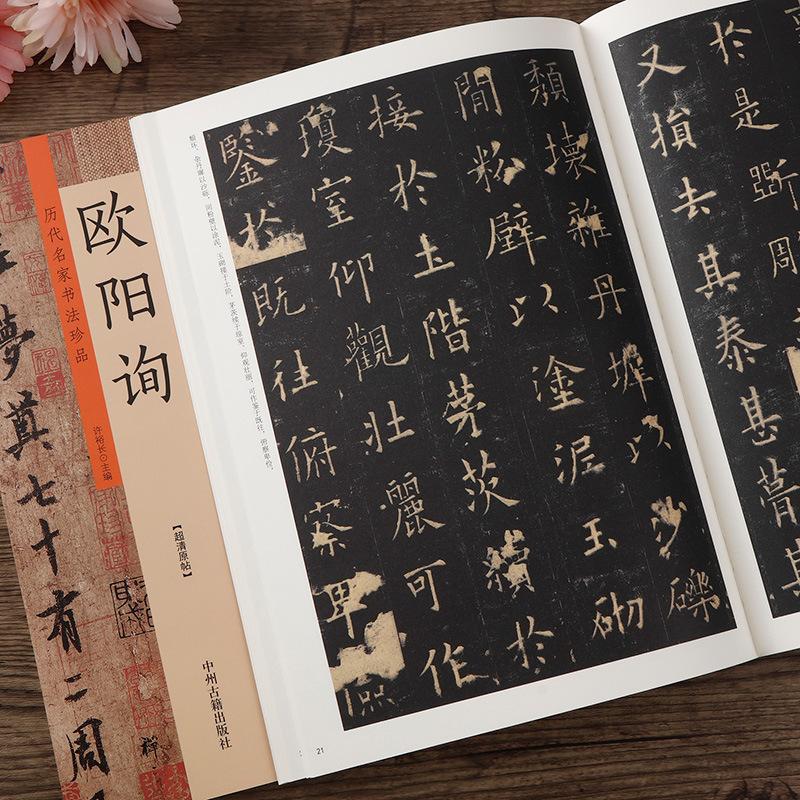 历代名家书法珍品
欧阳询
许裕长⊙主编
【超清原帖】
中州古籍出版社
夢奠七十有二周
於是斲
又損去其泰甚葺其
頹壞雜丹墀以沙礫
間粉壁以塗泥玉砌
接於土階茅茨續於
瓊室仰觀壯麗可作
鑒於既往俯察卑儉
颓坏，杂丹墀以沙砾，间粉壁以涂泥，玉砌接于土阶，茅茨续于琼室。仰观壮丽，可作鉴于既往，俯察卑俭，
21